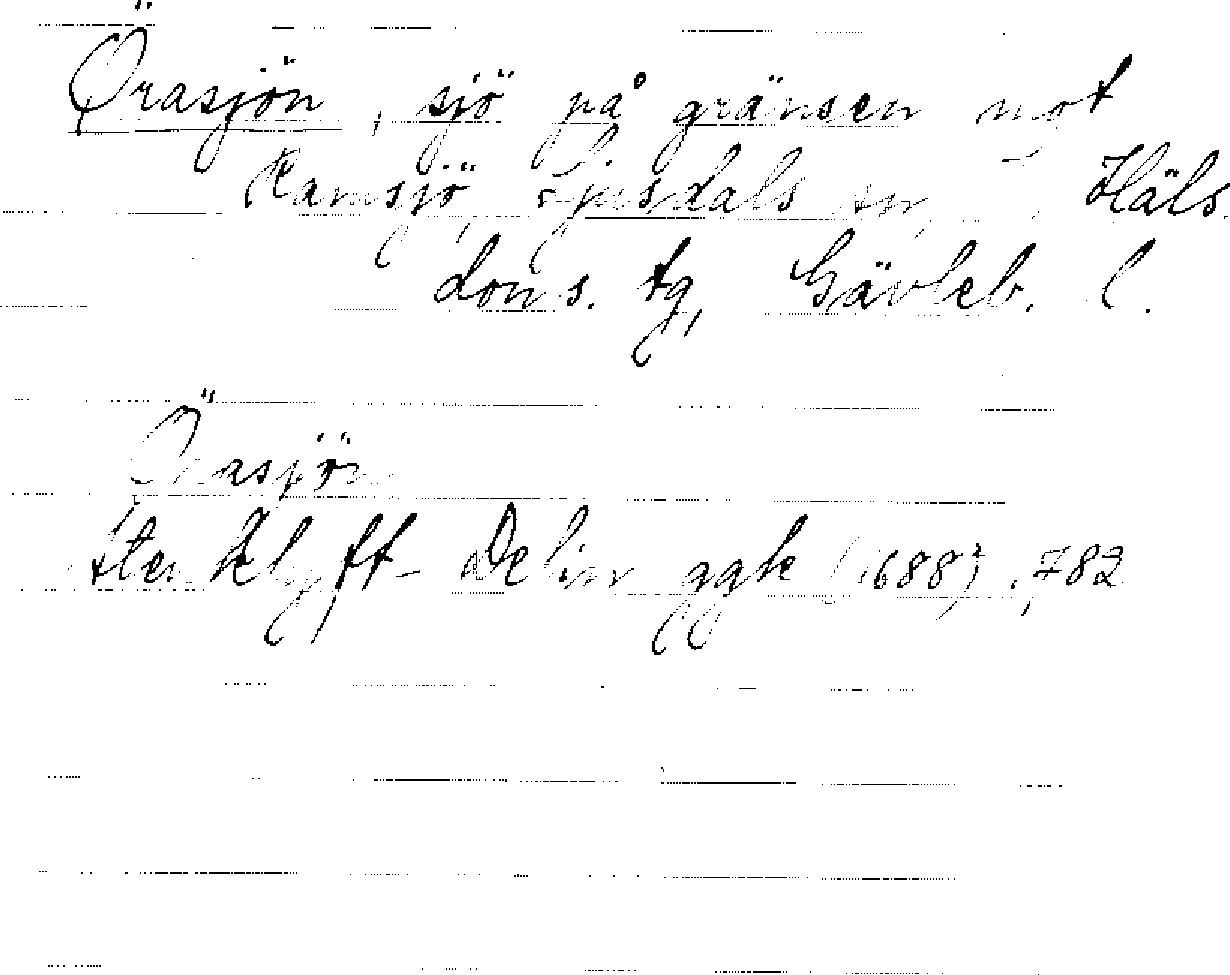 Örasjön, sjö på gränsen mot
Ramsjö, Ljusdals sn, Häls.
Doms. tg, Gävleb. l.
Örasjön
Stenklyft- Delin ggk (1688), 782